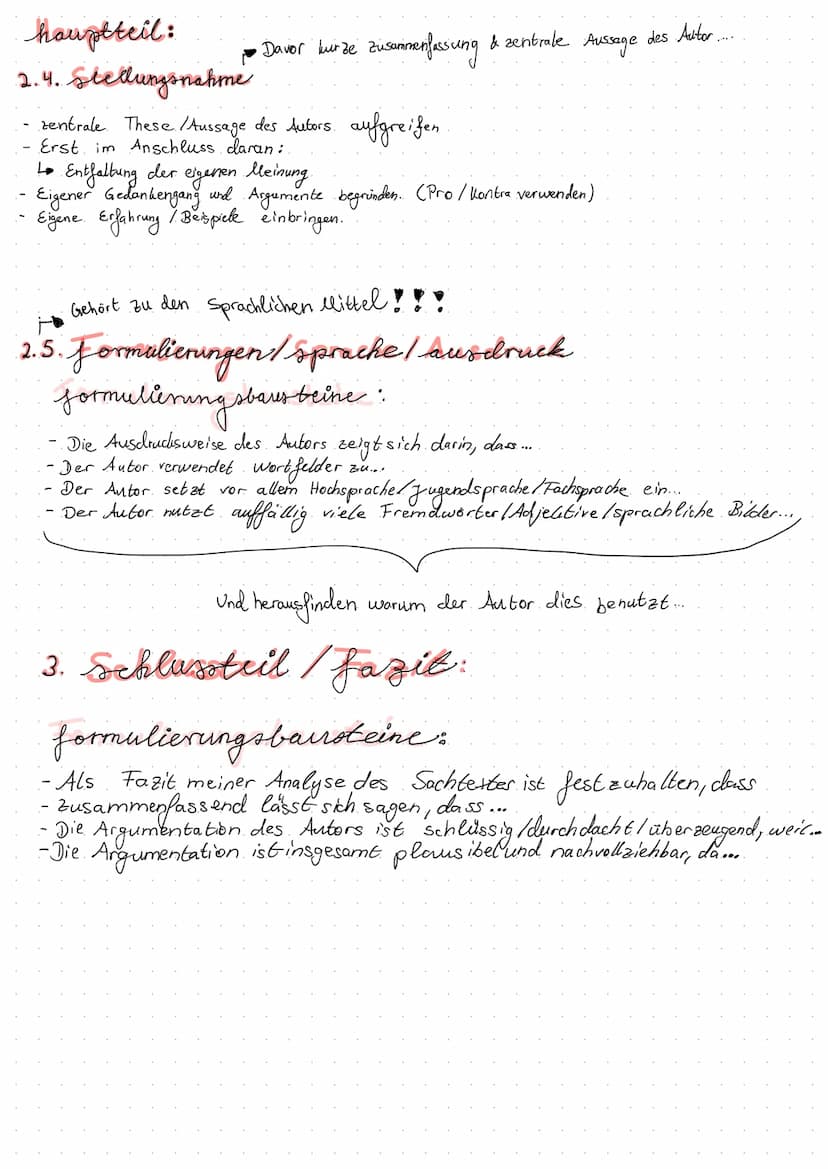 Hauptteil:
→ Davor kurze Zusammenfassung & zentrale Aussage des Autor....
2.4. Stellungsnahme
- zentrale These/Aussage des Autors aufgreifen
- Erst im Anschluss daran:
↳ Entfaltung der eigenen Meinung
- Eigener Gedankengang und Argumente begründen. (Pro/Kontra verwenden)
- Eigene Erfahrung / Beispiele einbringen.
→ Gehört zu den Sprachlichen Mittel!!!
2.5. Formulierungen/sprache/ausdruck
formulierungsbausteine:
- Die Ausdrucksweise des Autors zeigt sich darin, dass...
- Der Autor verwendet Wortfelder zu...
- Der Autor setzt vor allem Hochsprache/Jugendsprache/Fachsprache ein...
- Der Autor nutzt auffällig viele Fremdwörter/Adjektive/sprachliche Bilder...
Und herausfinden warum der Autor dies benutzt...
3. Schlussteil/Fazit:
formulierungsbausteine:
- Als Fazit meiner Analyse des Sachtextes ist festzuhalten, dass
- Zusammenfassend lässt sich sagen, dass...
- Die Argumentation des Autors ist schlüssig/durchdacht/überzeugend, weil...
- Die Argumentation ist insgesamt plausibel und nachvollziehbar, da...